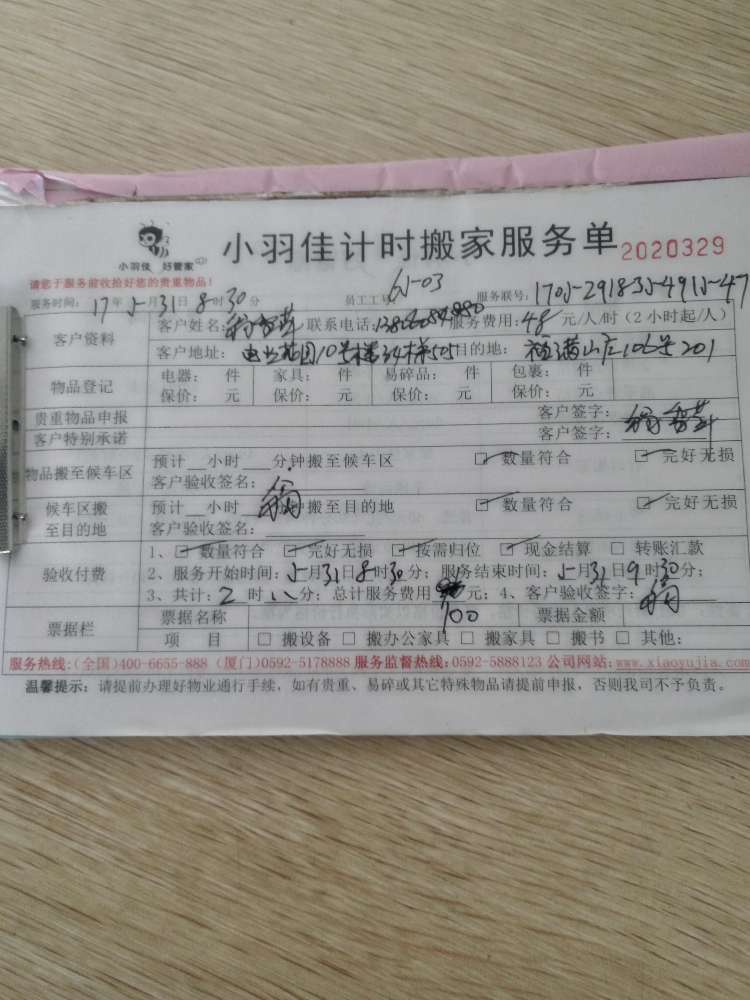 小羽佳 好管家
小羽佳计时搬家服务单 2020329
请您于服务前收拾好您的贵重物品!
服务时间: 17年 5月31日8时30分 员工工号 61-03 服务联号: 1705-2918-35-4915-47
客户资料 客户姓名: 联系电话: 服务费用: 48 元/人/时(2小时起/人)
客户地址: 花园10号楼34梯505 目的地: 山庄106号201
物品登记 电器: 件 家具: 件 易碎品: 件 包裹: 件
保价: 元 保价: 元 保价: 元 保价: 元
贵重物品申报 客户签字:
客户特别承诺 客户签字:
物品搬至候车区 预计__小时___分钟搬至候车区 ☑ 数量符合 ☑ 完好无损
客户验收签名:
候车区搬至目的地 预计__小时 分钟搬至目的地 ☑ 数量符合 ☑ 完好无损
客户验收签名:
验收付费 1、☑ 数量符合 ☑ 完好无损 ☑ 按需归位 ☑ 现金结算 □ 转账汇款
2、服务开始时间: 5月31日8时30分; 服务结束时间: 5月31日9时30分;
3、共计: 2 时 分; 总计服务费用 元; 4、客户验收签字:
100
票据栏 票据名称 票据金额
项 目 □ 搬设备 □ 搬办公家具 □ 搬家具 □ 搬书 □ 其他:
服务热线:(全国)400-6655-888 (厦门)0592-5178888 服务监督热线:0592-5888123 公司网站:www.xiaoyujia.com
温馨提示: 请提前办理好物业通行手续, 如有贵重、易碎或其它特殊物品请提前申报, 否则我司不予负责。